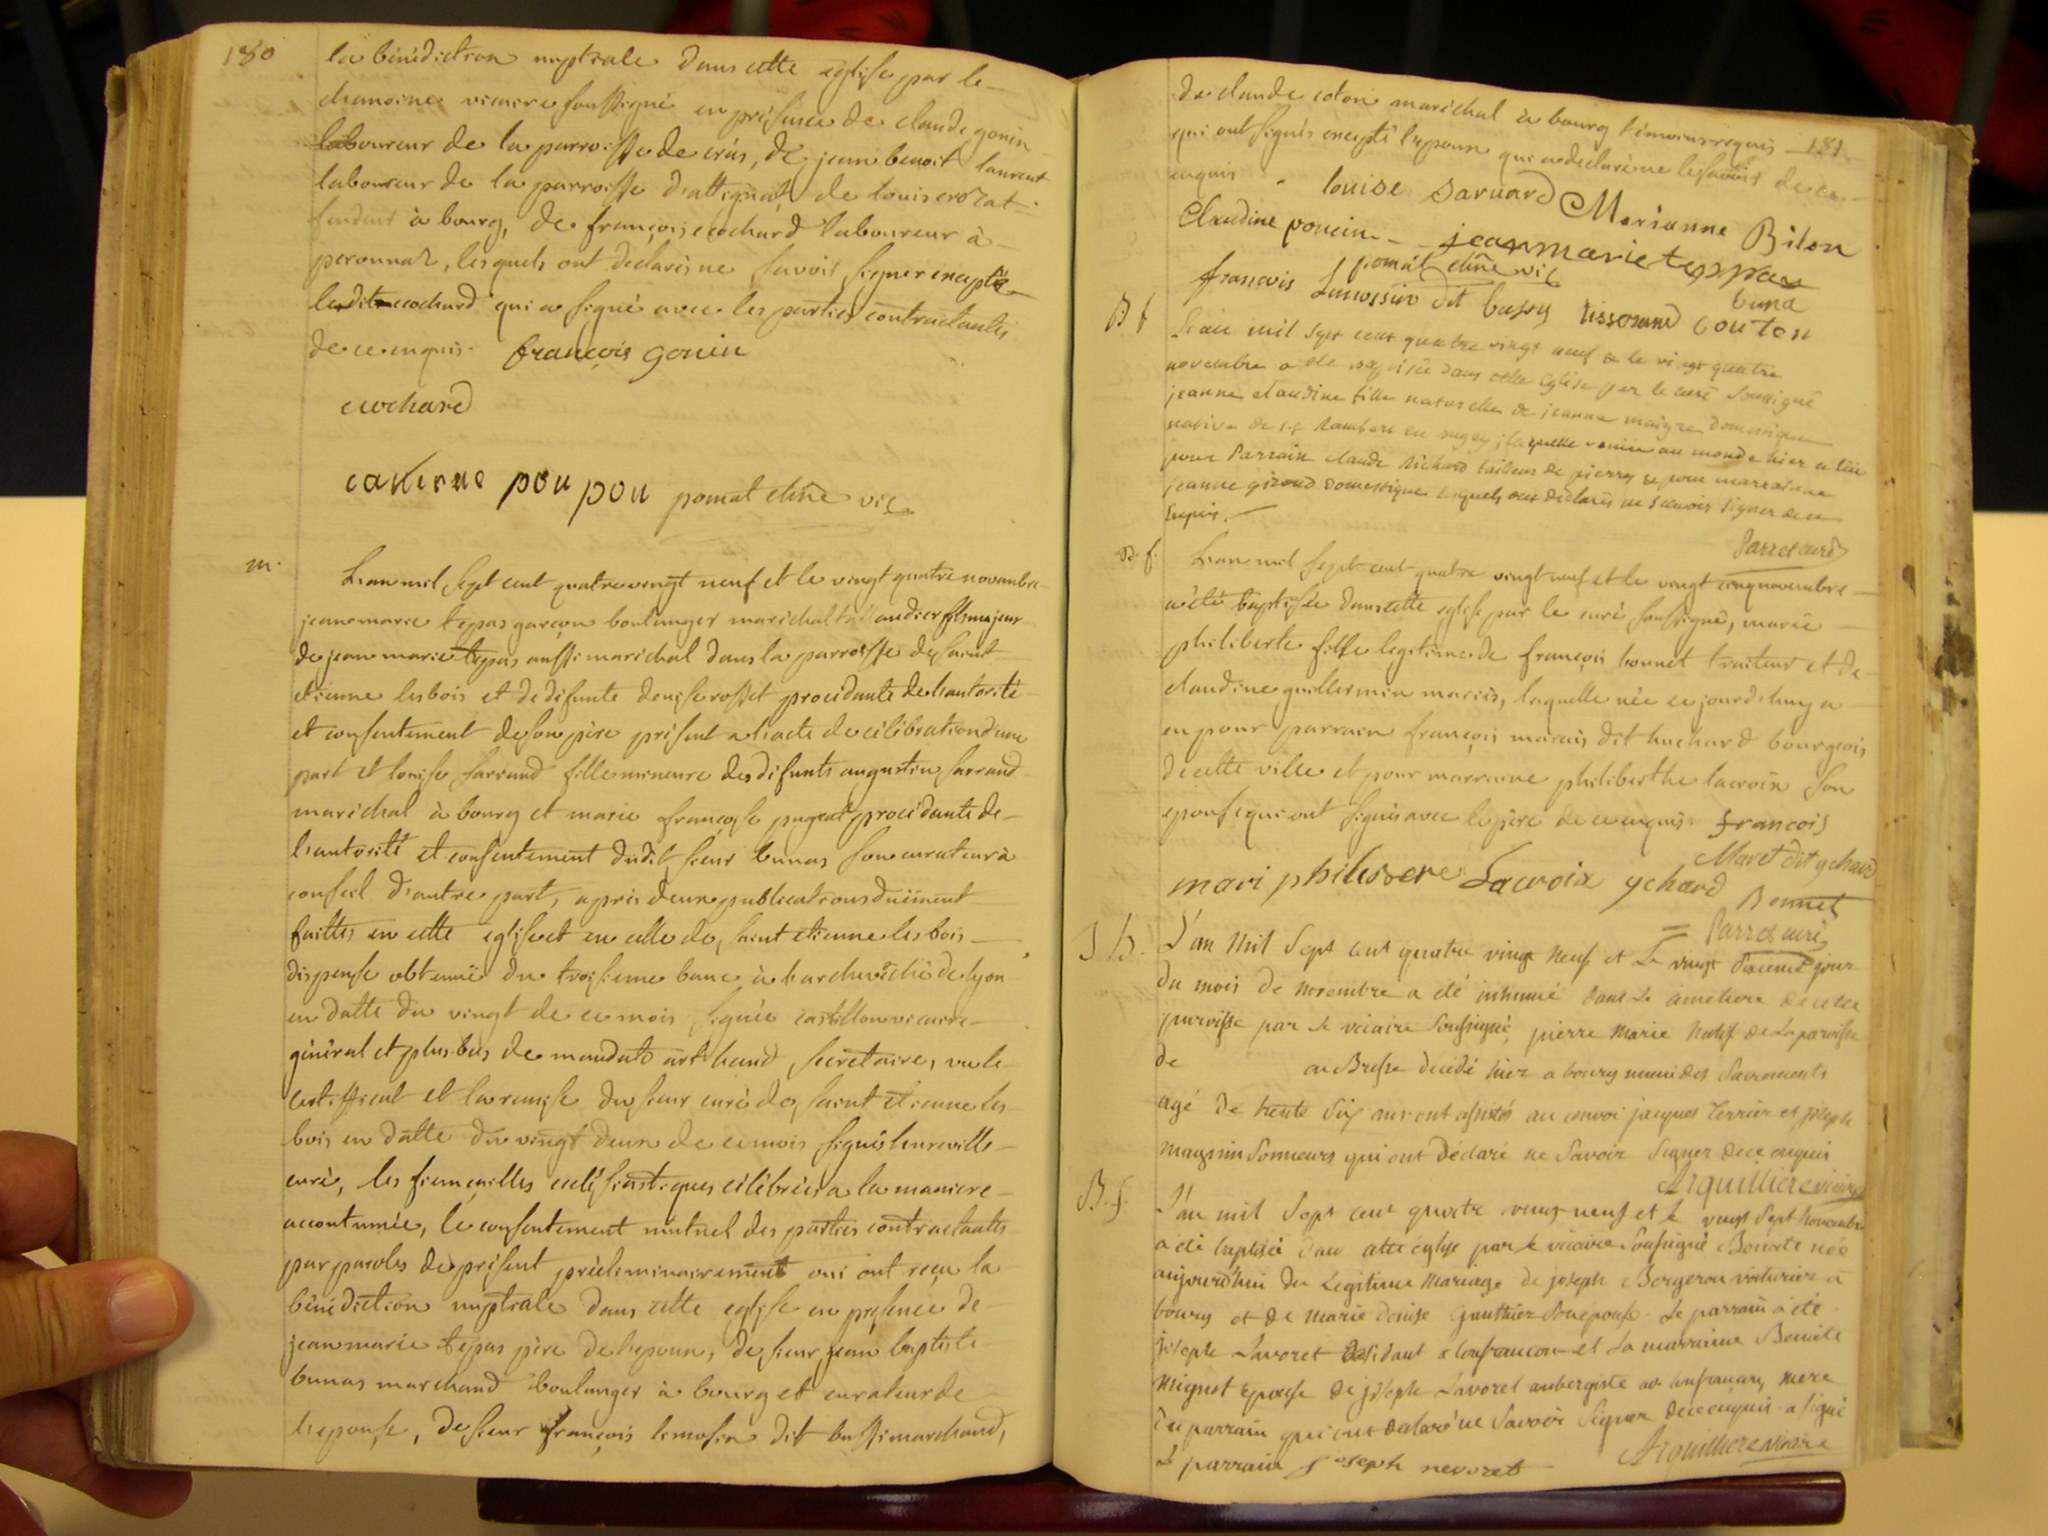 180
la bénédiction nuptiale dans cette église par le
chanoine vicaire soussigné en présence de claude gonin
laboureur de la parroisse de cras, de jean benoit laurent
laboureur de la parroisse d'attignat de louis crozat
à bourg, de françois cochard laboureur à
peronnaz, lesquels ont déclarés ne savoir signer excepté
ledit cochard qui a signé avec les parties contractantes
de ce enquis. françois gonin
cochard
caterine poupon pomat chne vic.
m.
L'an mil sept cent quatre vingt neuf et le vingt quatre novembre
jean marie tepas garçon boulanger marichal taillandier fils majeur
de jean marie tepas aussi marichal dans la parroisse de saint
etienne les bois et de défunte denise rosset procédante de l'autorité
et consentement de son père présent a l'acte de célébration d'une
part et louise sarrand fille mineure des défunts augustin sarrand
marichal à bourg et marie françoise pugeat procédante de
l'autorité et consentement dudit sieur bunas son curateur à
conseil d'autre part, après deux publications duëment
faittes en cette eglise et en celle de saint etienne les bois
dispense obtenuë du troisieme banc à l'archevêché de lyon
en datte du vingt de ce mois signée castillon vicaire
général et plus bas de mandato arthaud secretaire, vu le
certifficat et la remise du sieur curé de saint etienne les
bois en datte du vingt deux de ce mois signé
curé, les fiançailles eclésiastiques célébrées a la maniere
accoutumée, le consentement mutuel des parties contractantes
par paroles de présent préliminairement oui ont reçu la
bénédiction nuptiale dans cette eglise en présence de
jean marie tepas père de l'epoux, de sieur jean baptiste
bunas marchand boulanger à bourg et curateur de
l'epouse, de sieur françois limosin dit bussi marchand,
de claude coton marichal à bourg témoins requis 181
qui ont signés excepté l'epoux qui a declaré ne le savoir de ce
enquis. louise saruard Marianne Bilon
Claudine poncin jean marie teppas
pomat chne vic
francois Limossin dit bussy tisserand couton buna
B f
L'an mil sept cent quatre vingt neuf & le vingt quatre
novembre a été baptisée dans cette eglise par le curé soussigné
jeanne claudine fille naturelle de jeanne maigre domestique
native de st Rambert en bugey; laquelle venüe au monde hier a eu
pour Parrain claude Richard tailleur de pierres & pour marraine
jeanne giroud domestique lesquels ont déclarés ne scavoir signer de ce
enquis.
Parret curé
B. f.
L'an mil sept cent quatre vingt neuf et le vingt cinq novembre
a été baptisée dans cette eglise par le curé soussigné, marie
philiberte fille légitime de françois bonnet traiteur et de
claudine guillermin mariés, laquelle née ce jourd'huy a
eu pour parrain françois marais dit huchard bourgeois
de cette ville et pour marraine philiberthe lacroix son
epouse qui ont signés avec le père de ce enquis. francois
Maret dit ychard
mari philiberte Lacroix ychard Bonnet
Parret curé
S h.
L'an mil sept cent quatre vingt neuf et Le vingt sixieme jour
du mois de Novembre a été inhumé dans Le cimetiere de cette
paroisse par le vicaire soussigné, pierre Marie Natif de La paroisse
de en Bresse decedé hier a bourg muni des Sacrements
agé de trente six ans. ont assistés au convoi jacques Terrier et joseph
Maysnin sonneurs qui ont déclaré ne Savoir Signer de ce enquis
Arquilliere vicaire
B. f.
L'an mil Sept cent quatre vingt neuf et le vingt Sept Novembre
a été baptisée dans cette église par le vicaire soussigné Benoite née
aujourd'hui du Legitime Mariage de joseph Bergeron voiturier à
bourg et de Marie denise Gauthier son epouse. Le parrain a été
joseph Lavoret résidant a et La marraine Benoite
Mignot epouse de joseph Lavoret aubergiste mere
du parrain qui ont declaré ne Savoir Signer de ce enquis. a signé
Le parrain joseph nevoret
Arquilliere vicaire